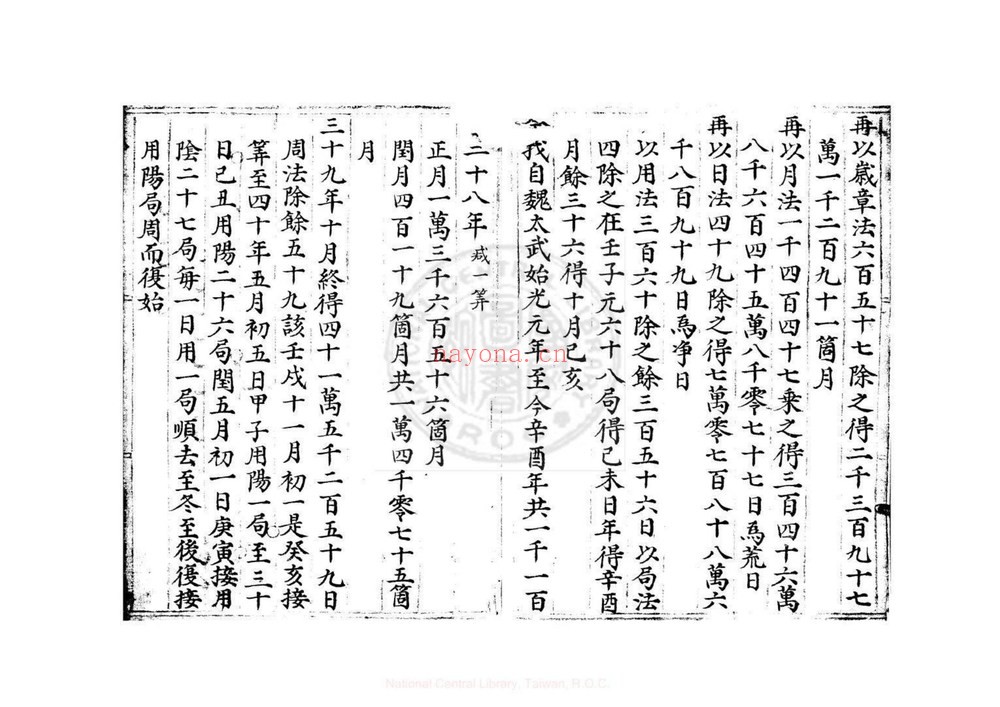 再以歲章法六百五十七除之得二千三百九十七
萬一千二百九十一箇月
再以月法一千四百四十七乘之得三百四十六萬
八千六百四十五萬八千零七十七日爲荒日
再以日法四十九除之得七萬零七百八十八萬六
千八百九十九日爲净日
以用法三百六十除之餘三百五十六日以局法
四除之在壬子元六十八局得己未日年得辛酉
月餘三十六得十月己亥
我自魏太武始光元年至今辛酉年共一千一百
三十八年 減一筭
正月一萬三千六百五十六箇月
閏月四百一十九箇月共一萬四千零七十五箇
月
三十九年十月終得四十一萬五千二百五十九日
周法除餘五十九該壬戌十一月初一是癸亥接
筭至四十年五月初五日甲子用陽一局至三十
日己丑用陽二十六局閏五月初一日庚寅接用
陰二十七局每一日用一局順去至冬至後復接
用陽局周而復始
nayona.cn
National Central Library, Taiwan, R.O.C.